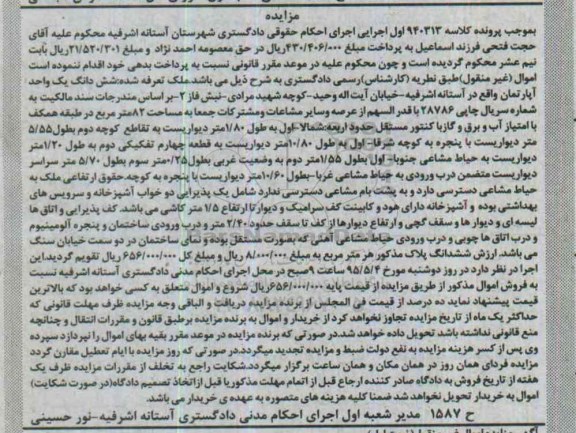 مزایده
بموجب پرونده کلاسه ۹۴۰۳۱۳ اول اجرایی اجرای احکام حقوقی دادگستری شهرستان آستانه اشرفیه محکوم علیه آقای
حجت فتحی فرزند اسماعیل به پرداخت مبلغ ۴۳۰/۴۰۶/۰۰۰ریال در حق معصومه احمد نژاد و مبلغ ۲۱/۵۲۰/۳۰۱ریال بابت
نیم عشر محکوم گردیده است و چون محکوم علیه در موعد مقرر قانونی نسبت به پرداخت بدهی خود اقدام ننموده است
اموال (غیر منقول)طبق نظریه (کارشناس)رسمی دادگستری به شرح ذیل می باشد.ملک تعرفه شده:شش دانگ یک واحد
آپارتمان واقع در آستانه اشرفیه-خیابان آیت اله وحید-کوچه شهید مرادی-نبش فاز ۲-بر اساس مندرجات سند مالکیت به
شماره سریال چاپی ۲۸۷۸۶ با قدر السهم از عرصه وسایر مشاعات ومشترکات جمعا به مساحت ۸۲متر مربع در طبقه همکف
با امتیاز آب و برق و گازبا کنتور مستقل حدود اربعه شمالا-اول به طول ۱/۸۰متر دیواریست به تقاطع کوچه دوم بطول۵/۵۵
متر دیواریست با پنجره به کوچه شرقا-اول به طول ۱۰/۸۰متر دیواریست به قطعه چهارم تفکیکی دوم به طول ۱/۲۰متر
دیواریست به حیاط مشاعی جنوبا-اول بطول ۱/۵۵متر دوم به وضعیت غربی بطول۰/۲۵متر سوم بطول ۵/۷۰ متر سراسر
دیواریست متضمن درب ورودی به حیاط مشاعی غربا-بطول ۱۰/۶۰متر دیواریست با پنجره به کوچه.حقوق ارتفاعی ملک به
حیاط مشاعی دسترسی دارد و به پشت بام مشاعی دسترسی ندارد شامل یک پذیرایی دو خواب آشپزخانه و سرویس های
بهداشتی بوده و آشپزخانه دارای هود و کابینت کف سرامیک و دیوار تا ارتفاع ۱/۵ متر کاشی می باشد. کف پذیرایی و اتاق ها
لیسه ای و دیوار ها و سقف گچی و ارتفاع دیوارها از کف تا سقف حدود ۲/۴۰متر و درب ورودی ساختمان و پنجره آلومینیوم
و درب اتاق ها چوبی و درب ورودی حیاط مشاعی آهنی که بصورت مستقل بوده و نمای ساختمان در دو سمت خیابان سنگ
می باشد. ارزش ششدانگ پلاک مذکور هر متر مربع به مبلغ ۸/۰۰۰/۰۰۰ ریال و مبلغ کل ۶۵۶/۰۰۰/۰۰۰ ریال تقویم گردید.این
اجرا در نظر دارد در روز دوشنبه مورخ ۹۵/۵/۴ ساعت ۹صبح در محل اجرای احکام مدنی دادگستری آستانه اشرفیه نسبت
به فروش اموال مذکور از طریق مزایده از قیمت پایه ۶۵۶/۰۰۰/۰۰۰ریال شروع و اموال متعلق به کسی خواهد بود که بالاترین
قیمت پیشنهاد نماید ده درصد از قیمت فی المجلس از برنده مزایده دریافت و الباقی وجه مزایده ظرف مهلت قانونی که
حداکثر یک ماه از تاریخ مزایده تجاوز نخواهد کرد از خریدار و اموال به برنده مزایده برطبق قانون و مقررات انتقال و چنانچه
منع قانونی نداشته باشد تحویل داده خواهد شد.در صورتی که برنده مزایده در موعد مقرر بقیه بهای اموال را نپردازد سپرده
وی پس از کسر هزینه مزایده به نفع دولت ضبط و مزایده تجدید میگردد.در صورتی که روز مزایده با ایام تعطیل مقارن گردد
مزایده فردای همان روز در همان مکان و همان ساعت برگزار میگردد.شکایت راجع به تخلف از مقررات مزایده ظرف یک
هفته از تاریخ فروش به دادگاه صادر کننده ارجاع قبل از اتمام مهلت مذکوریا قبل ازاتخاذ تصمیم دادگاه(در صورت شکایت)
اموال به خریدار تحویل نخواهد شد ضمنا کلیه هزینه های متصوره به عهده ی خریدار می باشد.
ح ۱۵۸۷ مدیر شعبه اول اجرای احکام مدنی دادگستری آستانه اشرفیه-نور حسینی